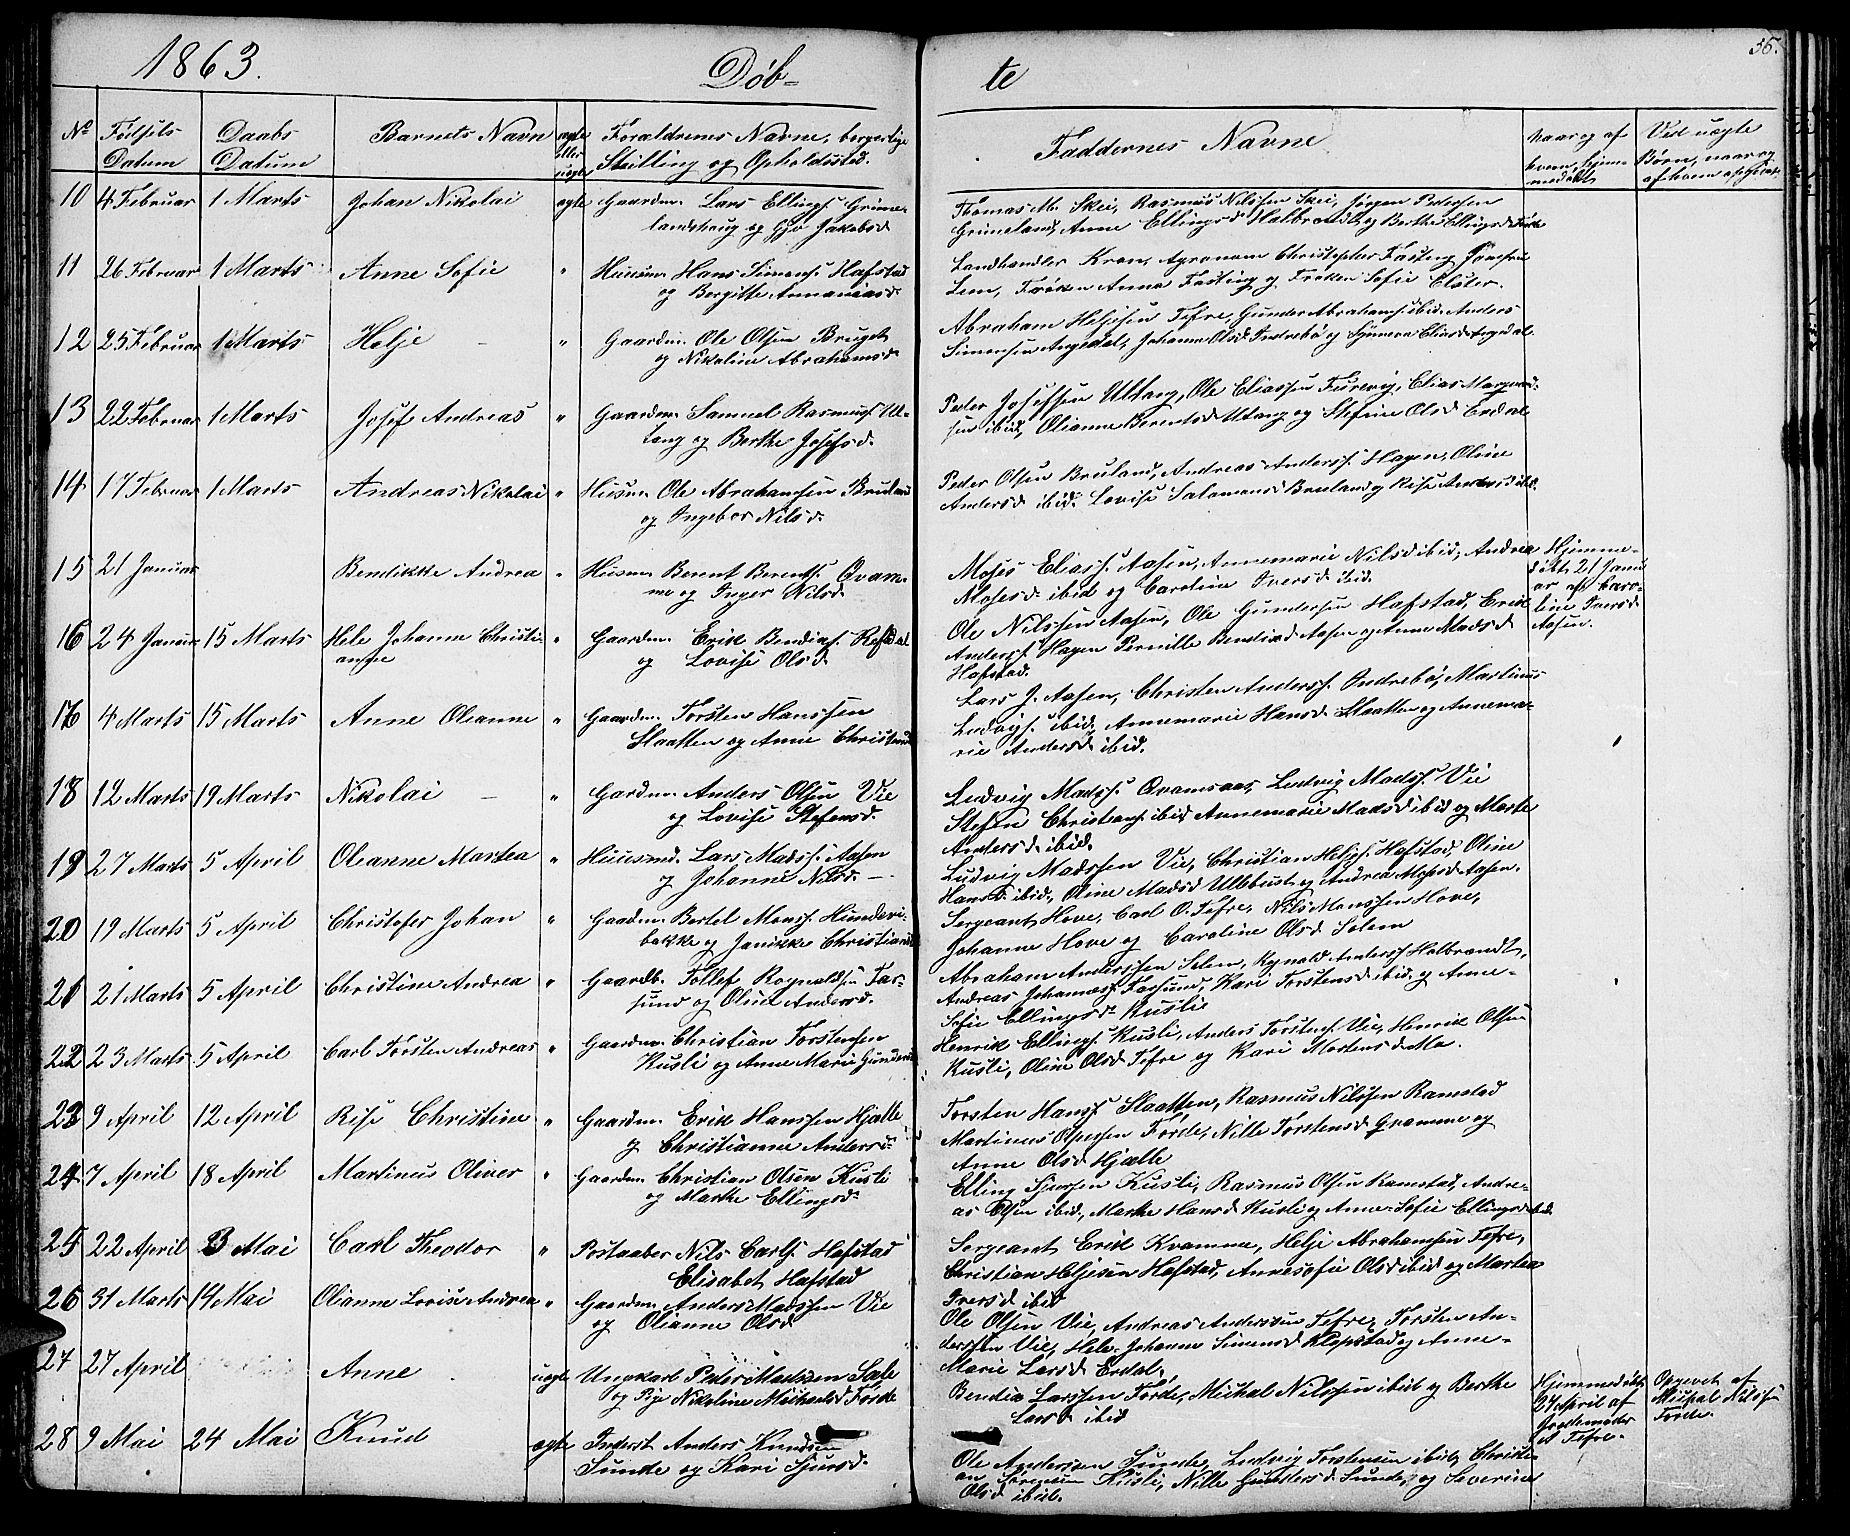 1863.
Døb-
te
56.
No
Fødsels Datum
Daabs Datum
Barnets Navn
ægte eller uægte
Forældrenes Navne, borgerlige Stilling og Opholdssted.
Faddernes Navne
Naar og af hvem hjemmedøbt
Ved uægte Børn, naar og af hvem
10 4 Februar 1 Marts Johan Nikolai ægte Gaardm. Lars Ellings. Grime-
landshaug og Gjø Jakobsd
Thomas M. Skei, Rasmus Nilssen Skei, Jørgen Pedersen
Grimeland, Anne Ellingsd Halbrendt og Berthe Ellingsd
11 26 Februar 1 Marts Anne Sofie " Huusm. Hans Simons. Hafstad
og Bergitte Annaniasd.
Landhandler Kron, Agronom Christopher Fasting, Jomfru
Lem, Frøken Anna Fasting og Frøken Sofie Elster.
12 25 Februar 1 Marts Helje - " Gaardm. Ole Olsen Bruget
og Nikoline Abrahamsd
Abraham Heljesen Tefre, Gunder Abrahams. ibid. Anders
Simonsen Angedal, Johanne Olsd Indrebø og Synneva Eliasd Angedal
13 22 Februar 1 Marts Josef Andreas " Gaardm. Samuel Rasmus. Ul-
tang og Berthe Josefsd.
Peder Josefsen Ultang, Ole Eliassen Furevig, Elias Magnus-
sen ibid, Olianne Berentsd Ultang og Stefine Olsd Erdal
14 17 Februar 1 Marts Andreas Nikolai " Huusm. Ole Abrahamsen Bruland
og Ingebor Nilsd.
Peder Olsen Bruland, Andreas Anderss. Hagen, Oline
Andersd ibid. Lovise Salamonsd Bruland og Rise Andersd ibid.
15 21 Januar Bendikke Andrea " Husm. Berent Berents. Qvam-
me og Inger Nilsd.
Moses Eliass. Aasen, Annemarie Nilsd ibid, Andrea
Mosesd. ibid og Caroline Iversd ibid.
Hjemme-
døbt 21 Janu
ar af Caro-
line Iversd
Aasen.
16 24 Januar 15 Marts Hele Johanne Christi- " Gaardm. Erik Bendiks. Refsdal
anne og Lovise Olsd
Ole Nilssen Aasen, Ole Gundersen Hafstad, Erik
Anderss. Hagen Pernille Bendixd Aasen og Anne Madsd
Hafstad.
17 4 Marts 15 Marts Anne Olianne " Gaardm. Torsten Hanssen
Slaatten og Anne Christensd
Lars J. Aasen, Christen Anderss. Indrebø, Martinus
Ludvigs. ibid, Annemarie Hansd. Slaatten og Annema-
rie Andersd ibid.
18 12 Marts 19 Marts Nikolai - " Gardm. Anders Olsen Vie
og Lovise Stefensd.
Ludvig Madss. Qvamsaas, Ludvig Madss. Vie
Stefen Christians. ibid Annemarie Madsd ibid og Marte
Andersd. ibid.
19 27 Marts 5 April Olianne Martea " Huusmd. Lars Madss. Aasen
og Johanne Nilsd. -
Ludvig Madssen Vie, Christian Heljes. Hafstad, Oline
Hansd. ibid, Oline Madsd Ullebust og Andrea Mosesd Aasen.
20 19 Marts 5 April Christofer Johan " Gaardm. Bertel Monss. Hundvi-
bakke og Janikke Christiansd
Sergeant Hove, Carl O. Tefre, Nils Monssen Hove,
Johanne Hove og Caroline Olsd Solem
21 21 Marts 5 April Christine Andrea " Gaardb. Tollef Rognalds. Far-
sund og Oline Andersd.
Abraham Anderssen Solem, Rognald Anderss. Halbrendt,
Andreas Johannes. Farsund, Kari Torstensd ibid. og Anne-
Sofie Ellingsd. Kusli
22 23 Marts 5 April Carl Torsten Andreas " Gaardm. Christian Torstensen
Kusli og Anne Marie Gundersd
Henrik Ellings. Kusli, Anders Torstens. Vie, Henrik Olsen
Kusli, Oline Olsd Tefre og Kari Mortensd. Mo.
23 9 April 12 April Rise Christine " Gaardm. Erik Hanssen Hjelle
og Christianne Andersd.
Torsten Hanss. Slaatten, Rasmus Nilssen Ramstad
Martinus Espesen Førde, Nille Torstensd Qvamme og
Anne Olsd Hjelle
24 7 April 18 April Martinus Oliver " Gaardm. Christian Olsen Kusli
og Marthe Ellingsd.
Elling Sjurssen Kusli, Rasmus Olsen Ramstad, Andre-
as Olsen ibid, Marthe Hansd Kusli og Anne-Sofie Ellingsd ibid
25 22 April 3 Mai Carl Theodor " Postaaber Nils Carls. Hafstad
Elisabet Hafstad
Sergeant Erik Kvamme, Helje Abrahamsen Tefre,
Christian Heljesen Hafstad, Annesofie Olsd ibid og Martea
Iversd ibid
26 31 Marts 14 Mai Olianne Lovise Andrea " Gaardm. Anders Madssen Vie
og Olianne Olsd.
Ole Olsen Vie, Andreas Andersen Tefre, Torsten An-
derssen Vie, Hele-Johanne Simensd Klepstad og Anne-
Marie Larsd. Erdal.
27 27 April Anne uægte Ungkarl Peder Madssen Sæle
og Pige Nikoline Michaelsd Førde
Bendix Larssen Førde, Mickal Nilssen ibid og Berthe
Larsd ibid
Hjemmedøbt
27 April af
Jordemoder
A Tefre.
Opgivet af
Mickal Nilssen
Førde.
28 9 Mai 24 Mai Knud ægte Inderst Anders Knudsen
Sunde og Kari Sjursd.
Ole Anderssen Sunde, Ludvig Torstensen ibid, Christi-
an Sørensen Kusli, Nille Gundersd. Sunde, og Severine
Olsd ibid.